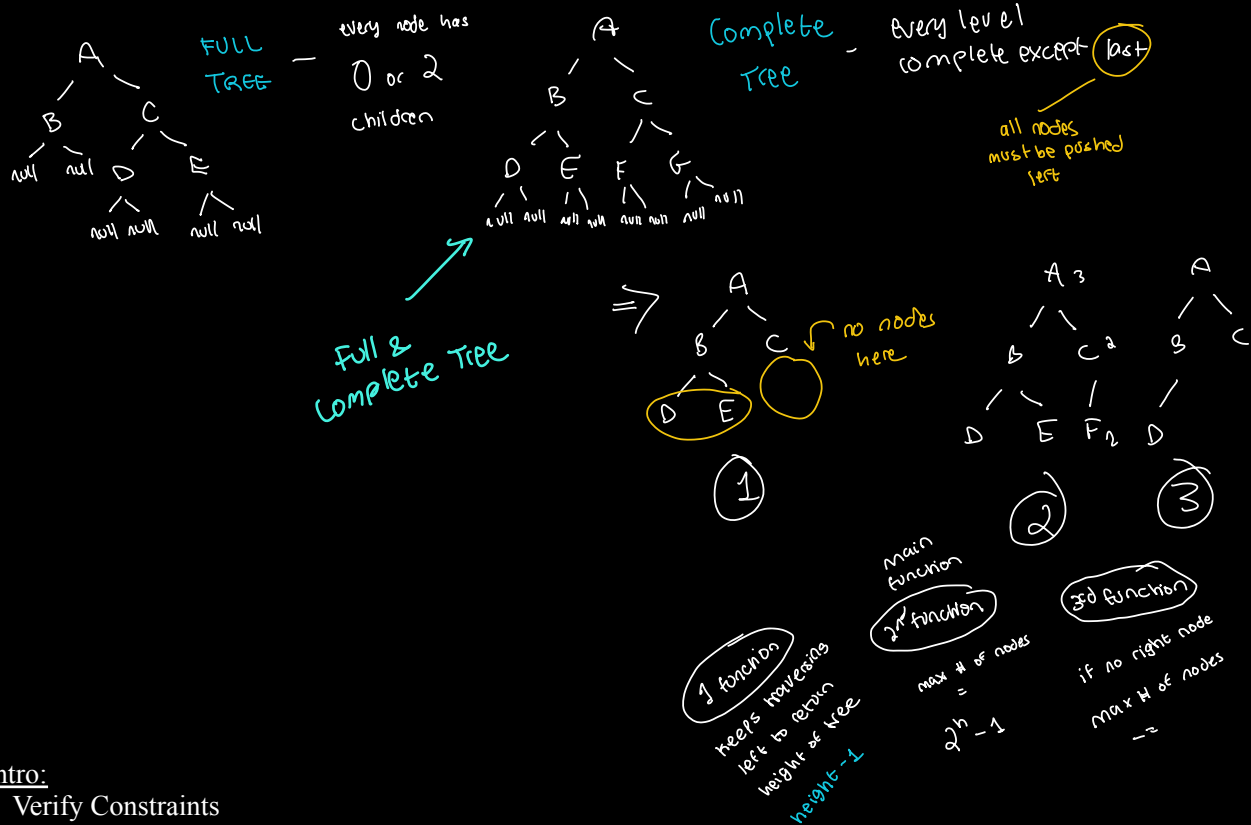 A
B C
null null D E
null null null null
FULL
TREE
-
every node has
0 or 2
children
A
B C
D E F G
null null null null null null null null
Complete
Tree
-
every level
complete except last
all nodes
must be pushed
left
Full &
Complete Tree
⇒
A
B C
D E
no nodes
here
1
A 3
B C 2
D E F 2
2
A
B C
D
3
1 function
keeps traversing
left to return
height of tree
height -1
main
function
2nd function
max # of nodes
=
2^h - 1
3rd function
if no right node
max # of nodes
-=
ntro:
Verify Constraints